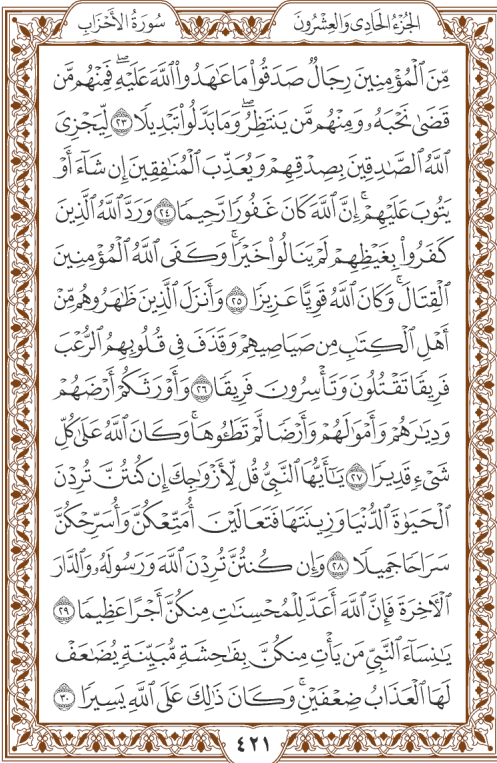 الجُزْءُ الحَادِى وَالعِشْرُونَ
سُورَةُ الأَحْزَاب
مِّنَ ٱلْمُؤْمِنِينَ رِجَالٌ صَدَقُوا۟ مَا عَٰهَدُوا۟ ٱللَّهَ عَلَيْهِ ۖ فَمِنْهُم مَّن
قَضَىٰ نَحْبَهُۥ وَمِنْهُم مَّن يَنتَظِرُ ۖ وَمَا بَدَّلُوا۟ تَبْدِيلًا ٢٣ لِّيَجْزِىَ
ٱللَّهُ ٱلصَّٰدِقِينَ بِصِدْقِهِمْ وَيُعَذِّبَ ٱلْمُنَٰفِقِينَ إِن شَآءَ أَوْ
يَتُوبَ عَلَيْهِمْ ۚ إِنَّ ٱللَّهَ كَانَ غَفُورًا رَّحِيمًا ٢٤ وَرَدَّ ٱللَّهُ ٱلَّذِينَ
كَفَرُوا۟ بِغَيْظِهِمْ لَمْ يَنَالُوا۟ خَيْرًا ۚ وَكَفَى ٱللَّهُ ٱلْمُؤْمِنِينَ
ٱلْقِتَالَ ۚ وَكَانَ ٱللَّهُ قَوِيًّا عَزِيزًا ٢٥ وَأَنزَلَ ٱلَّذِينَ ظَٰهَرُوهُم مِّنْ
أَهْلِ ٱلْكِتَٰبِ مِن صَيَاصِيهِمْ وَقَذَفَ فِى قُلُوبِهِمُ ٱلرُّعْبَ
فَرِيقًا تَقْتُلُونَ وَتَأْسِرُونَ فَرِيقًا ٢٦ وَأَوْرَثَكُمْ أَرْضَهُمْ
وَدِيَٰرَهُمْ وَأَمْوَٰلَهُمْ وَأَرْضًا لَّمْ تَطَـُٔوهَا ۚ وَكَانَ ٱللَّهُ عَلَىٰ كُلِّ
شَىْءٍ قَدِيرًا ٢٧ يَٰٓأَيُّهَا ٱلنَّبِىُّ قُل لِّأَزْوَٰجِكَ إِن كُنتُنَّ تُرِدْنَ
ٱلْحَيَوٰةَ ٱلدُّنْيَا وَزِينَتَهَا فَتَعَالَيْنَ أُمَتِّعْكُنَّ وَأُسَرِّحْكُنَّ
سَرَاحًا جَمِيلًا ٢٨ وَإِن كُنتُنَّ تُرِدْنَ ٱللَّهَ وَرَسُولَهُۥ وَٱلدَّارَ
ٱلْءَاخِرَةَ فَإِنَّ ٱللَّهَ أَعَدَّ لِلْمُحْسِنَٰتِ مِنكُنَّ أَجْرًا عَظِيمًا ٢٩
يَٰنِسَآءَ ٱلنَّبِىِّ مَن يَأْتِ مِنكُنَّ بِفَٰحِشَةٍ مُّبَيِّنَةٍ يُضَٰعَفْ
لَهَا ٱلْعَذَابُ ضِعْفَيْنِ ۚ وَكَانَ ذَٰلِكَ عَلَى ٱللَّهِ يَسِيرًا ٣٠
٤٢١